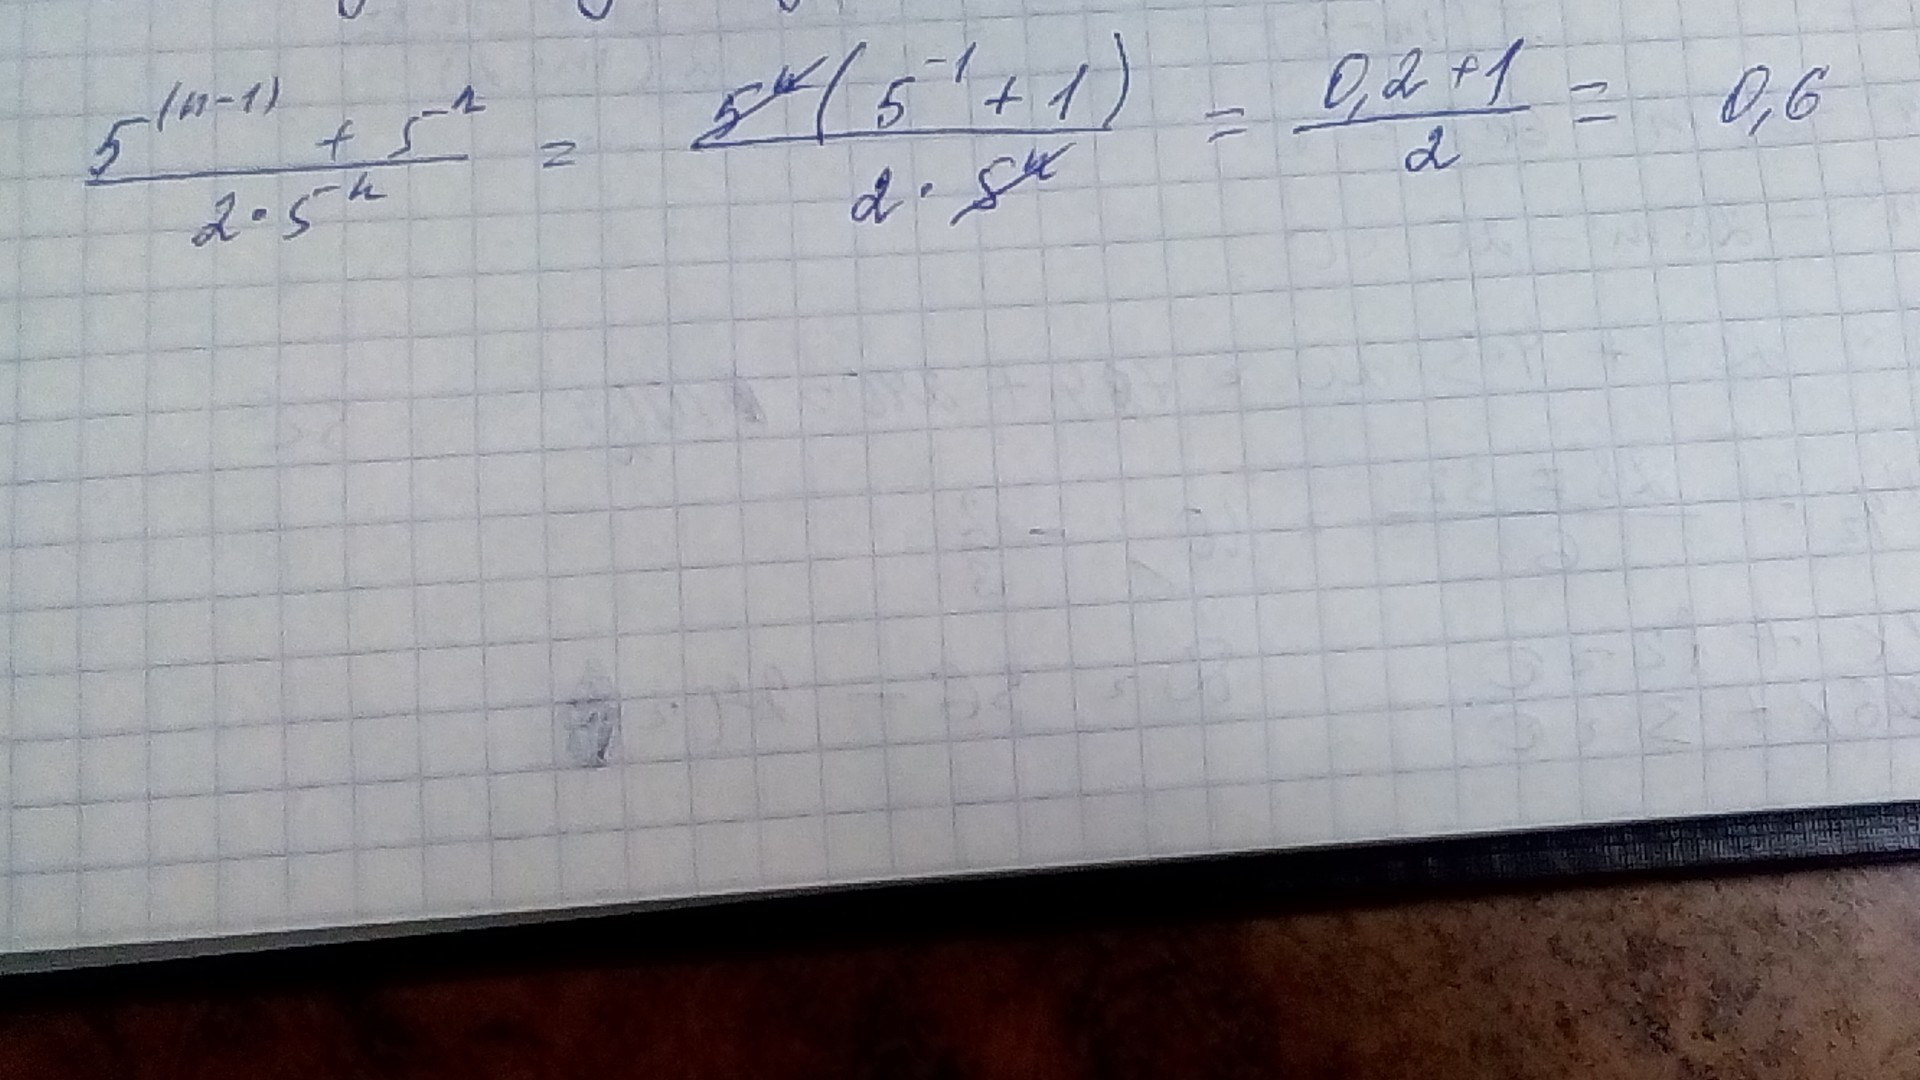 5^(n-1) + 5^n / 2·5^n = 5^n(5^-1 + 1) / 2·5^n = 0,2+1 / 2 = 0,6